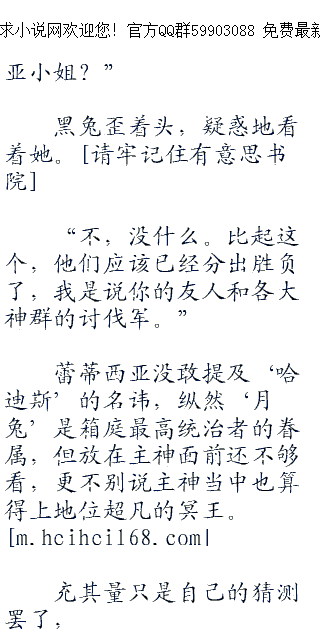 求小说网欢迎您！官方QQ群59903088 免费最新
亚小姐？”
黑兔歪着头，疑惑地看
着她。[请牢记住有意思书
院]
“不，没什么。比起这
个，他们应该已经分出胜负
了，我是说你的友人和各大
神群的讨伐军。”
蕾蒂西亚没敢提及‘哈
迪斯’的名讳，纵然‘月
兔’是箱庭最高统治者的眷
属，但放在主神面前还不够
看，更不别说主神当中也算
得上地位超凡的冥王。
[m.hcihci168.com|
充其量只是自己的猜测
罢了，